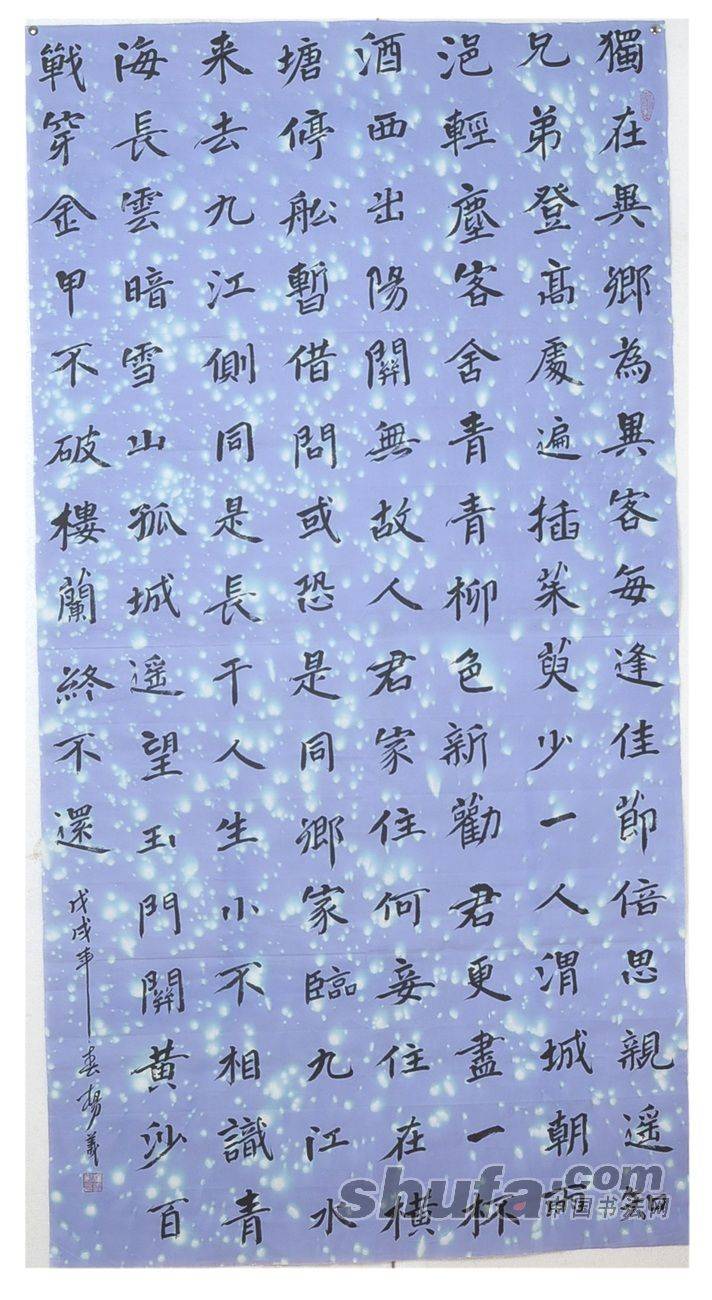 獨在異鄉為異客每逢佳節倍思親遥知
兄弟登高處遍插茱萸少一人渭城朝雨
浥輕塵客舍青青柳色新勸君更盡一杯
酒西出陽關無故人君家住何妾住在橫
塘停舩暫借問或恐是同鄉家臨九江水
来去九江側同是長干人生小不相識青
海長雲暗雪山孤城遥望玉門關黄沙百
戰穿金甲不破樓蘭終不還
戊戌年春楊義
shufa.com
中国书法网